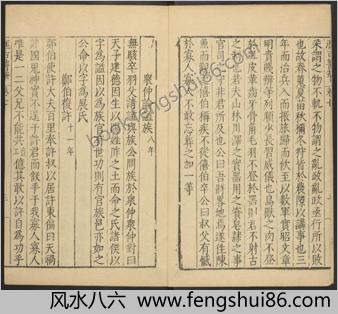 采謂之物不軌不物謂之亂政亂政亟行所以敗
也故春蒐夏苗秋獮冬狩皆於農隙以講事也三
年而治兵入而振旅歸而飲至以數軍實昭文章
明貴賤辨等列順少長習威儀也鳥獸之肉不登
於俎皮革齒牙骨角毛羽不登於器則君不射古
之制也若夫山林川澤之實器用之資皂隸之事
官司之守非君所及也公曰吾將略地焉遂往陳
魚而觀之僖伯稱疾不從僖伯卒公曰叔父有憾
於寡人寡人不敢忘葬之加一等
衆仲論官族 八年
無駭卒羽父請謚與族公問族於衆仲衆仲對曰
天子建德因生以賜姓胙之土而命之氏諸侯以
字為謚因以為族官有世功則有官族邑亦如之
公命以字為展氏
鄭伯復許 十一年
鄭伯使許大夫百里奉許叔以居許東偏曰天禍
許國鬼神實不逞于許君而假手于我寡人寡人
唯是一二父兄不能共億其敢以許自為功乎
风水八六
www.fengshui86.com